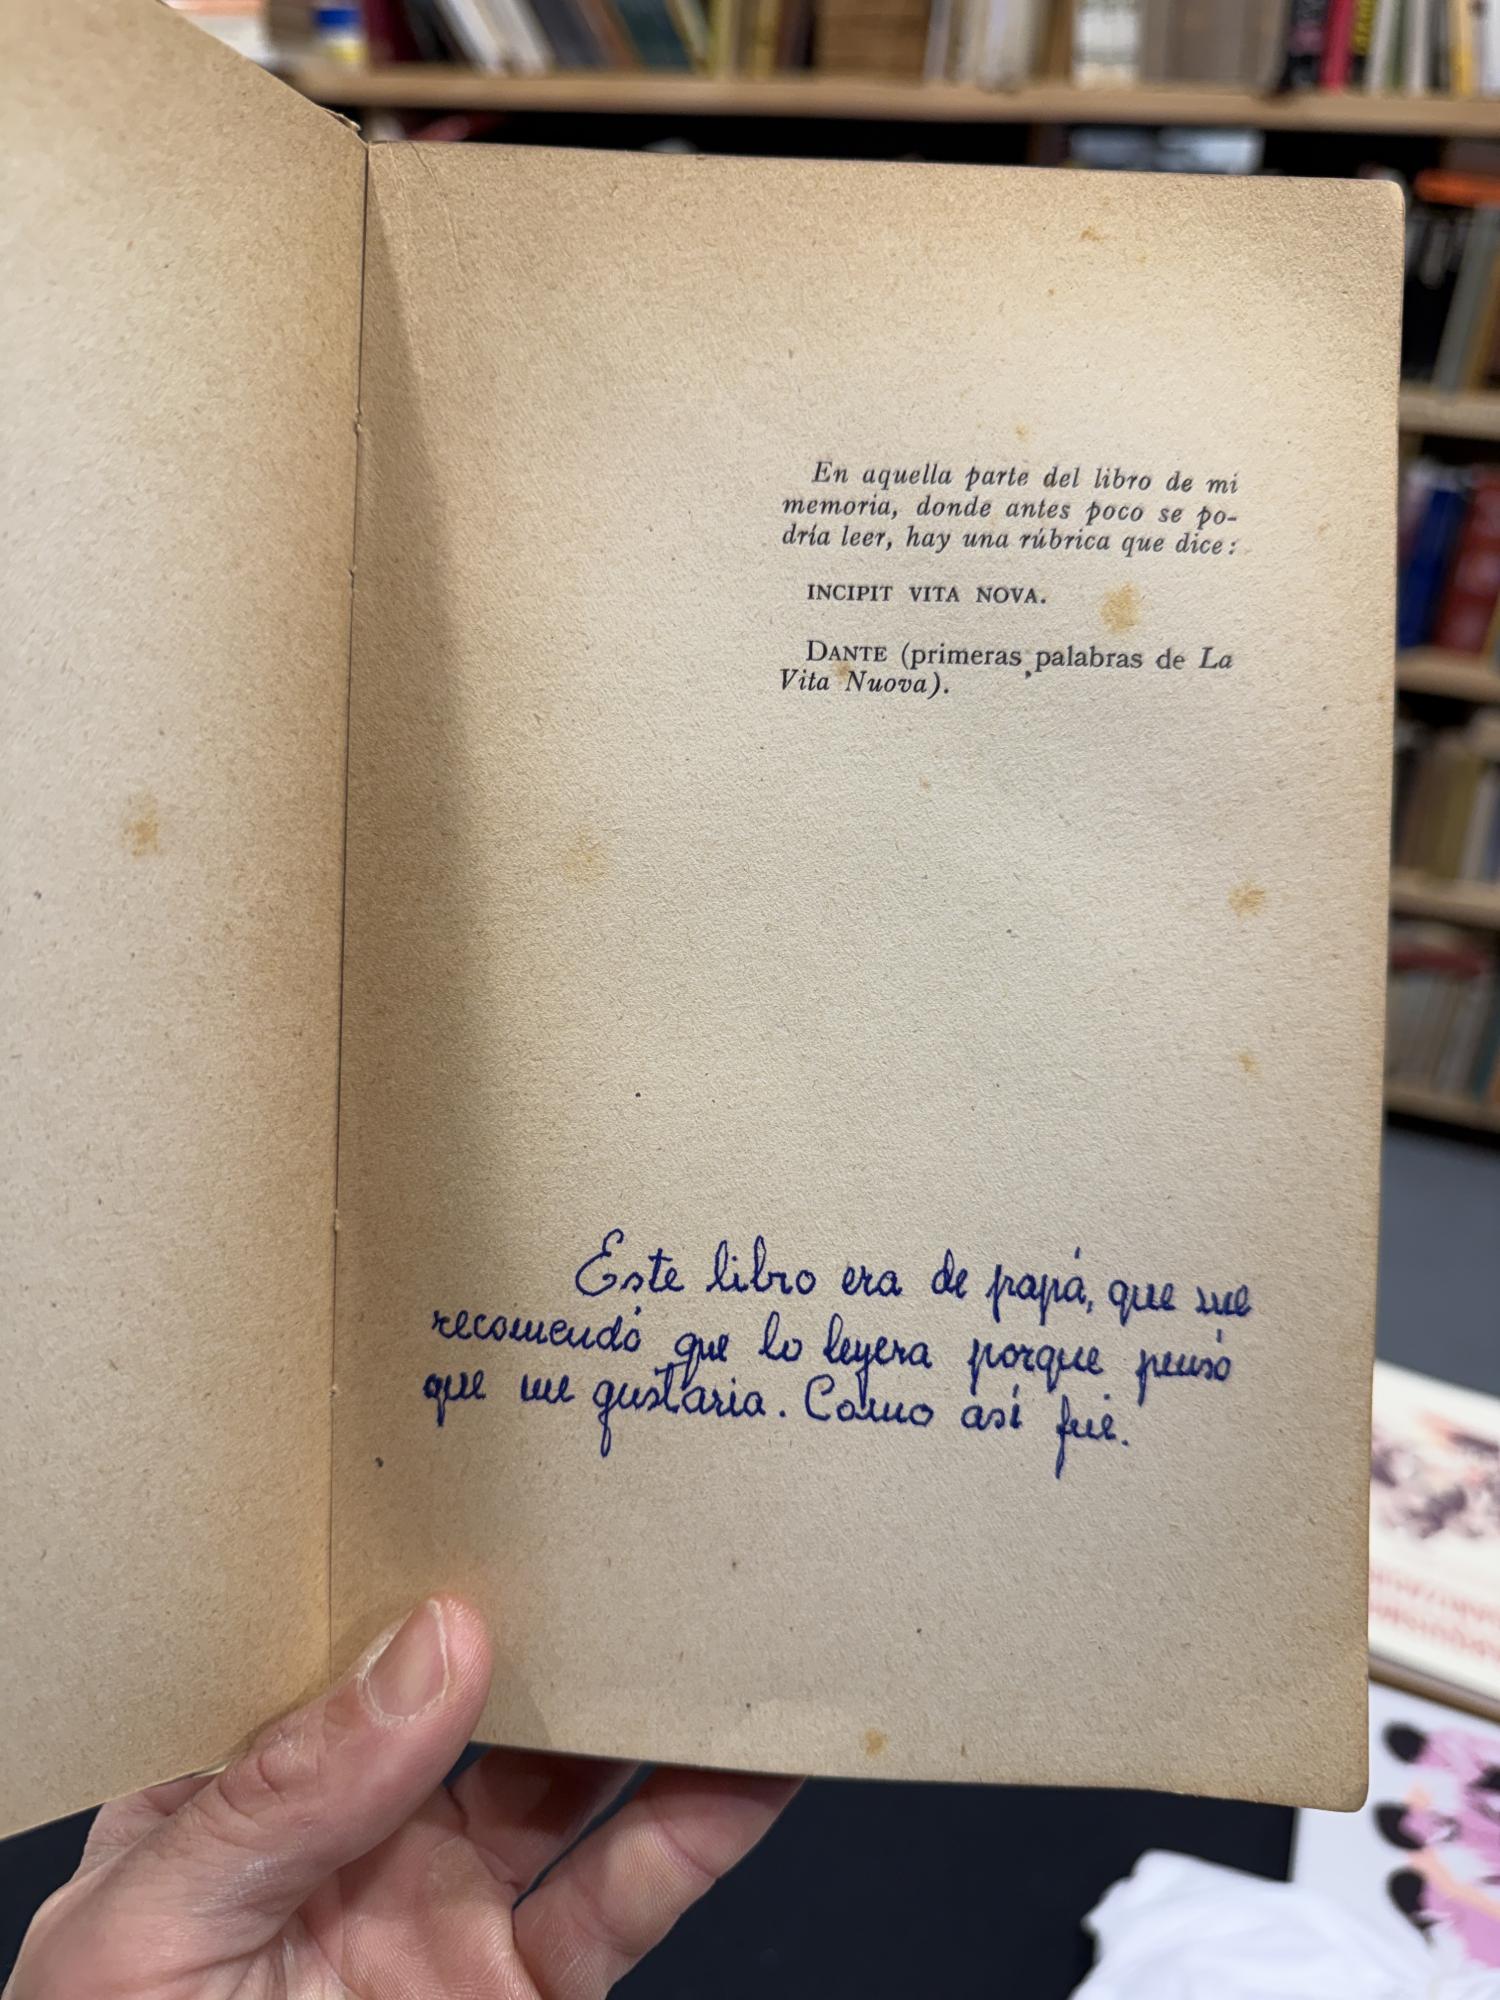 En aquella parte del libro de mi
memoria, donde antes poco se po-
dría leer, hay una rúbrica que dice:
INCIPIT VITA NOVA.
DANTE (primeras palabras de La
Vita Nuova).
Este libro era de papá, que me
recomendó que lo leyera porque pensó
que me gustaria. Como así fué.